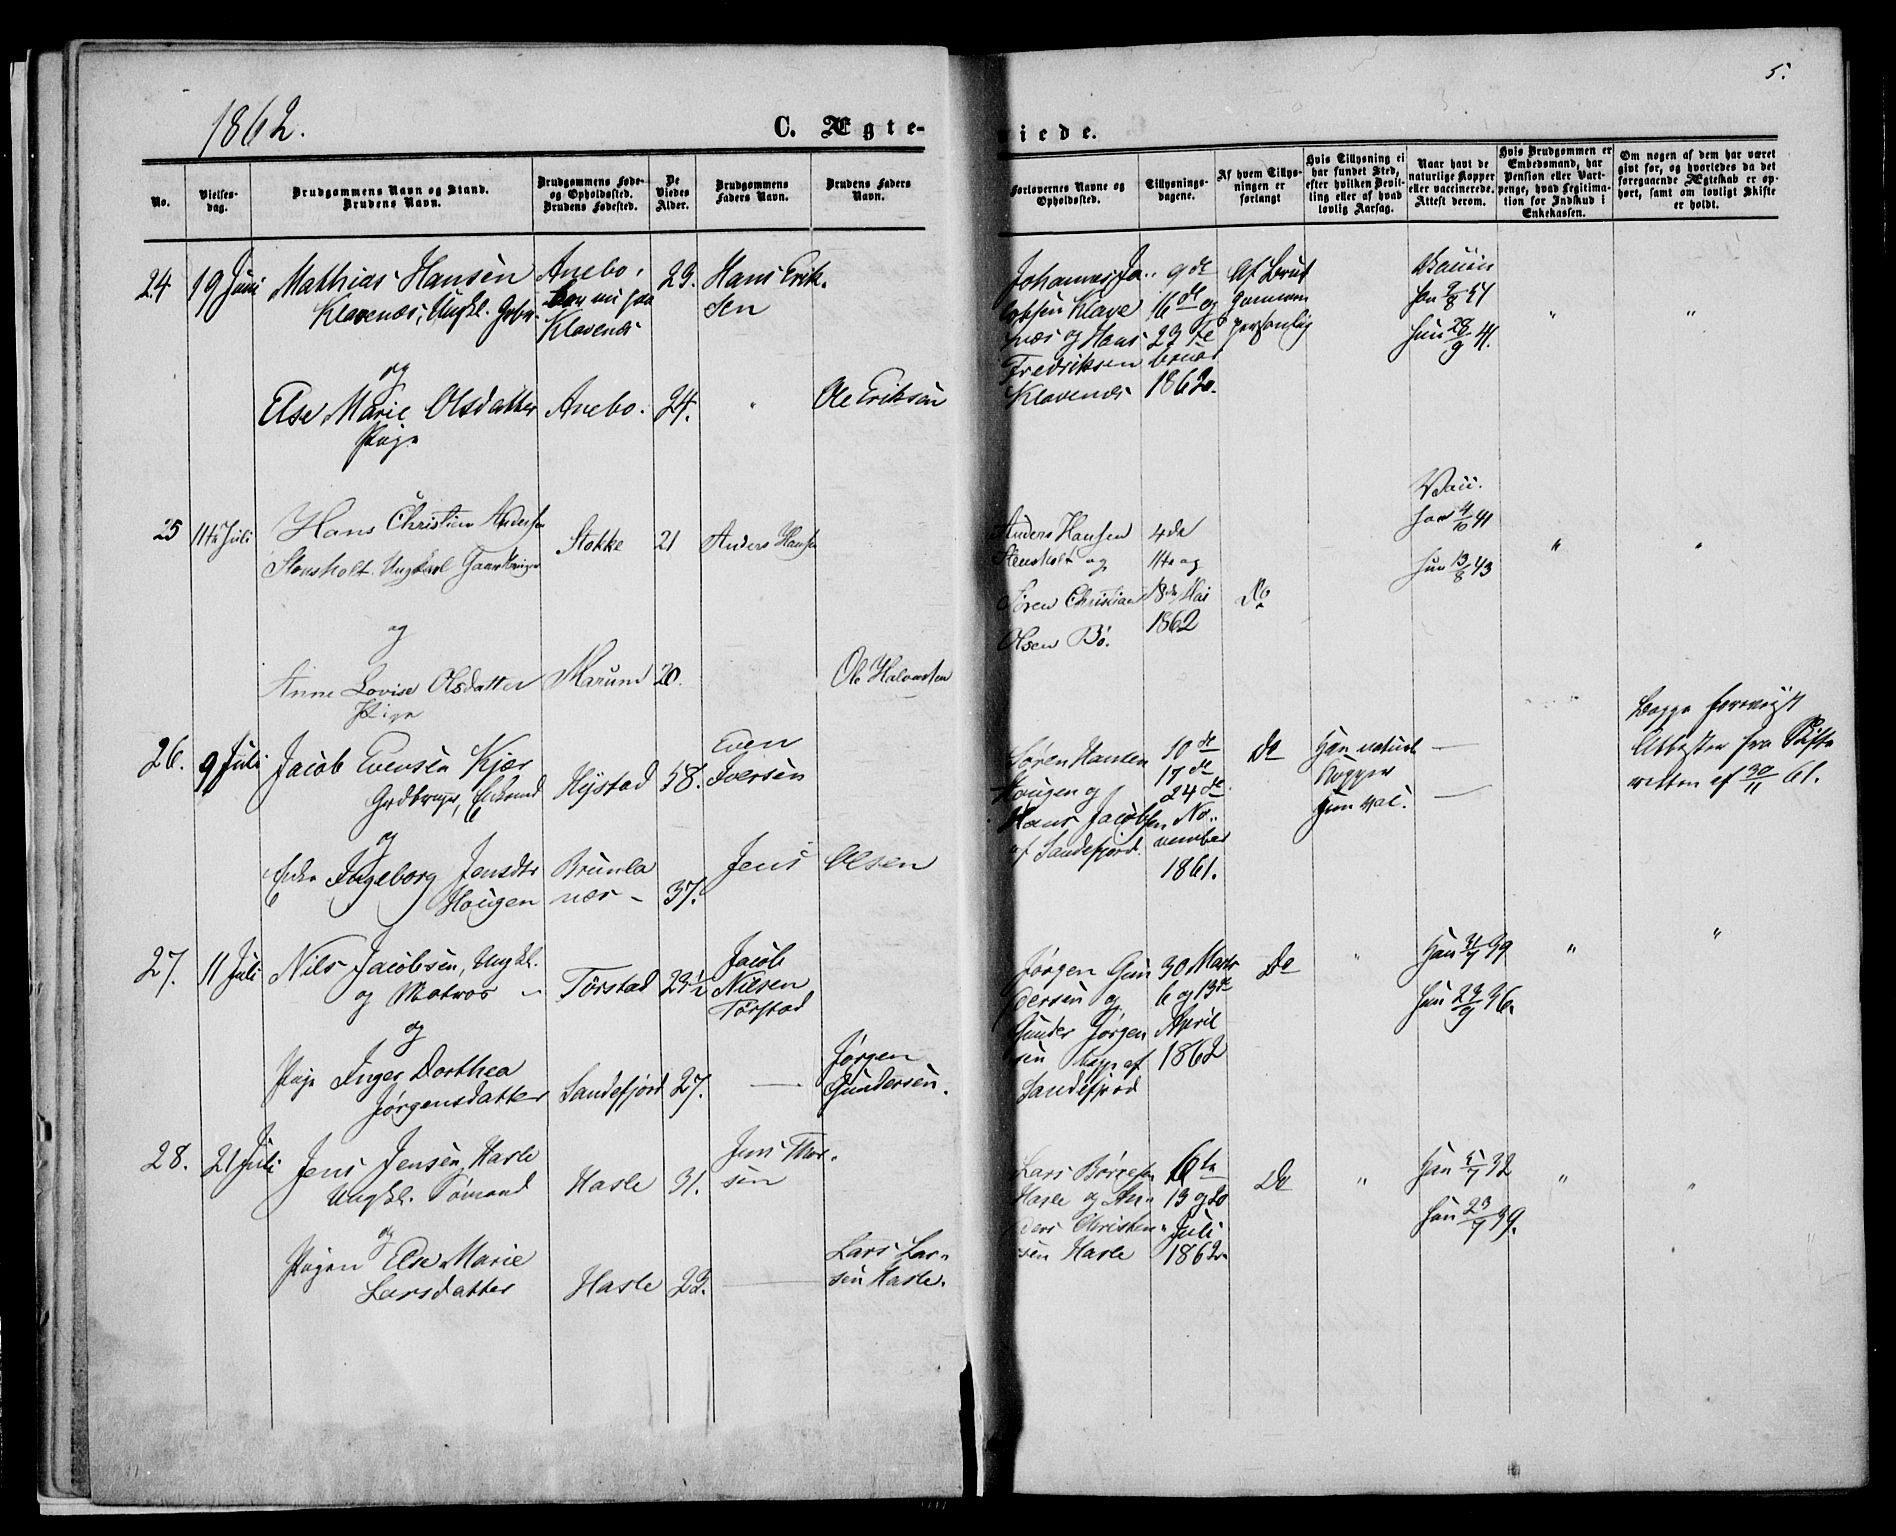 1862.
C. Ægte-
viede.
5.
No.
Vielses-
dag.
Brudgommens Navn og Stand.
Brudens Navn.
Brudgommens Føde-
og Opholdssted.
Brudens Fødested.
De
Viedes
Alder.
Brudgommens
Faders Navn.
Brudens Faders
Navn.
Forlovernes Navne og
Opholdssted.
Tillysnings-
dagene.
Af hvem Tillys-
ningen er
forlangt
Hvis Tillysning ei
har fundet Sted,
efter hvilken Bevil-
ling eller af hvad
lovlig Aarsag.
Naar havt de
naturlige Kopper
eller vaccinerede.
Attest derom.
Hvis Brudgommen er
Embedsmand, har
Pension eller Vart-
penge, hvad Legitima-
tion for Indskud i
Enkekassen.
Om nogen af dem har været
givt før, og hvorledes da det
foregaaende Ægteskab er op-
hørt, samt om lovligt Skifte
er holdt.
24
19 Juni
Mathias Hansen
Klavenæs, Ungkl.
og
Else Marie Olsdatter
Pige
Anebo.
nu paa
Klavenæs
Anebo.
23.
24.
Hans Erik-
sen
Ole Eriksen
Johannes Ja-
cobsen Klave
næs og Hans
Fredriksen
Klavenæs
9de
16de og
23de
Februar
1862.
Af Brud
gommen
personlig
Vaccin
han 9/8 41
hun 28/9 41.
"
"
25
11te Juli
Hans Christian Andersen
Stensholt. Ungkarl Gaardbruger
og
Anne Lovise Olsdatter
Pige
Stokke
Marum
21
20.
Anders Hansen
Ole Halvorsen
Anders Hansen
Stensholt og
Søren Christian
Olsen Bø.
4de
11te og
18de Mai
1862
Do
Vacc.
han 4/10 41
hun 13/8 43
"
"
26.
9 Juli
Jacob Evensen Kjær
Grdbruger, Enkemd
og
Enke Ingeborg Jensdtr
Hougen
Hystad
Brunla
næs -
58.
37.
Even
Iversen
Jens Olsen
Søren Hansen
Hougen og
Hans Jacobsen
af Sandefjord.
10de
17de
24de
No-
vember
1861.
Do
Han naturl
Kopper
Hun vac.
Begge forevist
Attester fra Skifte
retten af 30/11 61.
27.
11 Juli
Nils Jacobsen, Ungkl.
og Matros -
og
Pige Inger Dorthea
Jørgensdatter
Torstad
Sandefjord
23 1/2
27.
Jacob
Nilsen
Torstad
Jørgen
Gundersen.
Jørgen Gun
dersen og
Gunder Jørgen
sen begge af
Sandefjord
30 Marts
6 og 13de
April
1862
Do
"
"
"
28.
21 Juli
Jens Jensen, Hasle
Ungkl. Sømand
og
Pigen Else Marie
Larsdatter
Hasle
Hasle
31.
23.
Jens Thor-
sen
Lars Lar-
sen Hasle.
Lars Børresen
Hasle og An-
ders Christen-
sen Hasle
6te
13 og 20
Juli
1862.
Do
"
"
"